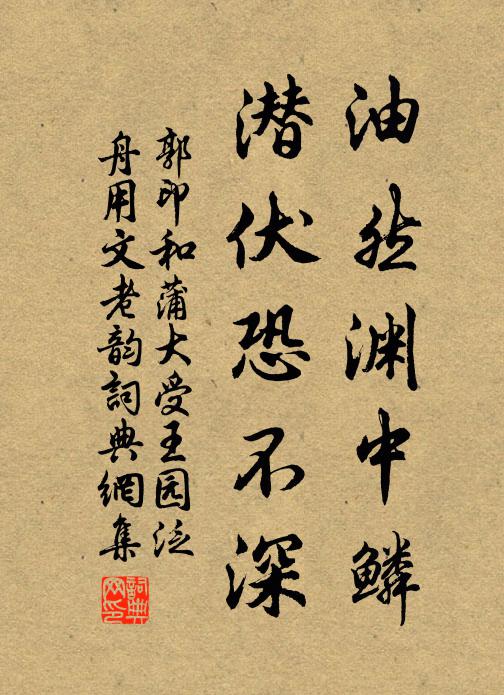 油然渊中鳞
潜伏恐不深
郭印和蒲大受王园泛
舟用文老韵词典網集
詞典网印